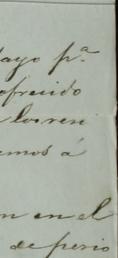 layo p.a
ofrecido
los ren
emos á
n en el
de perio